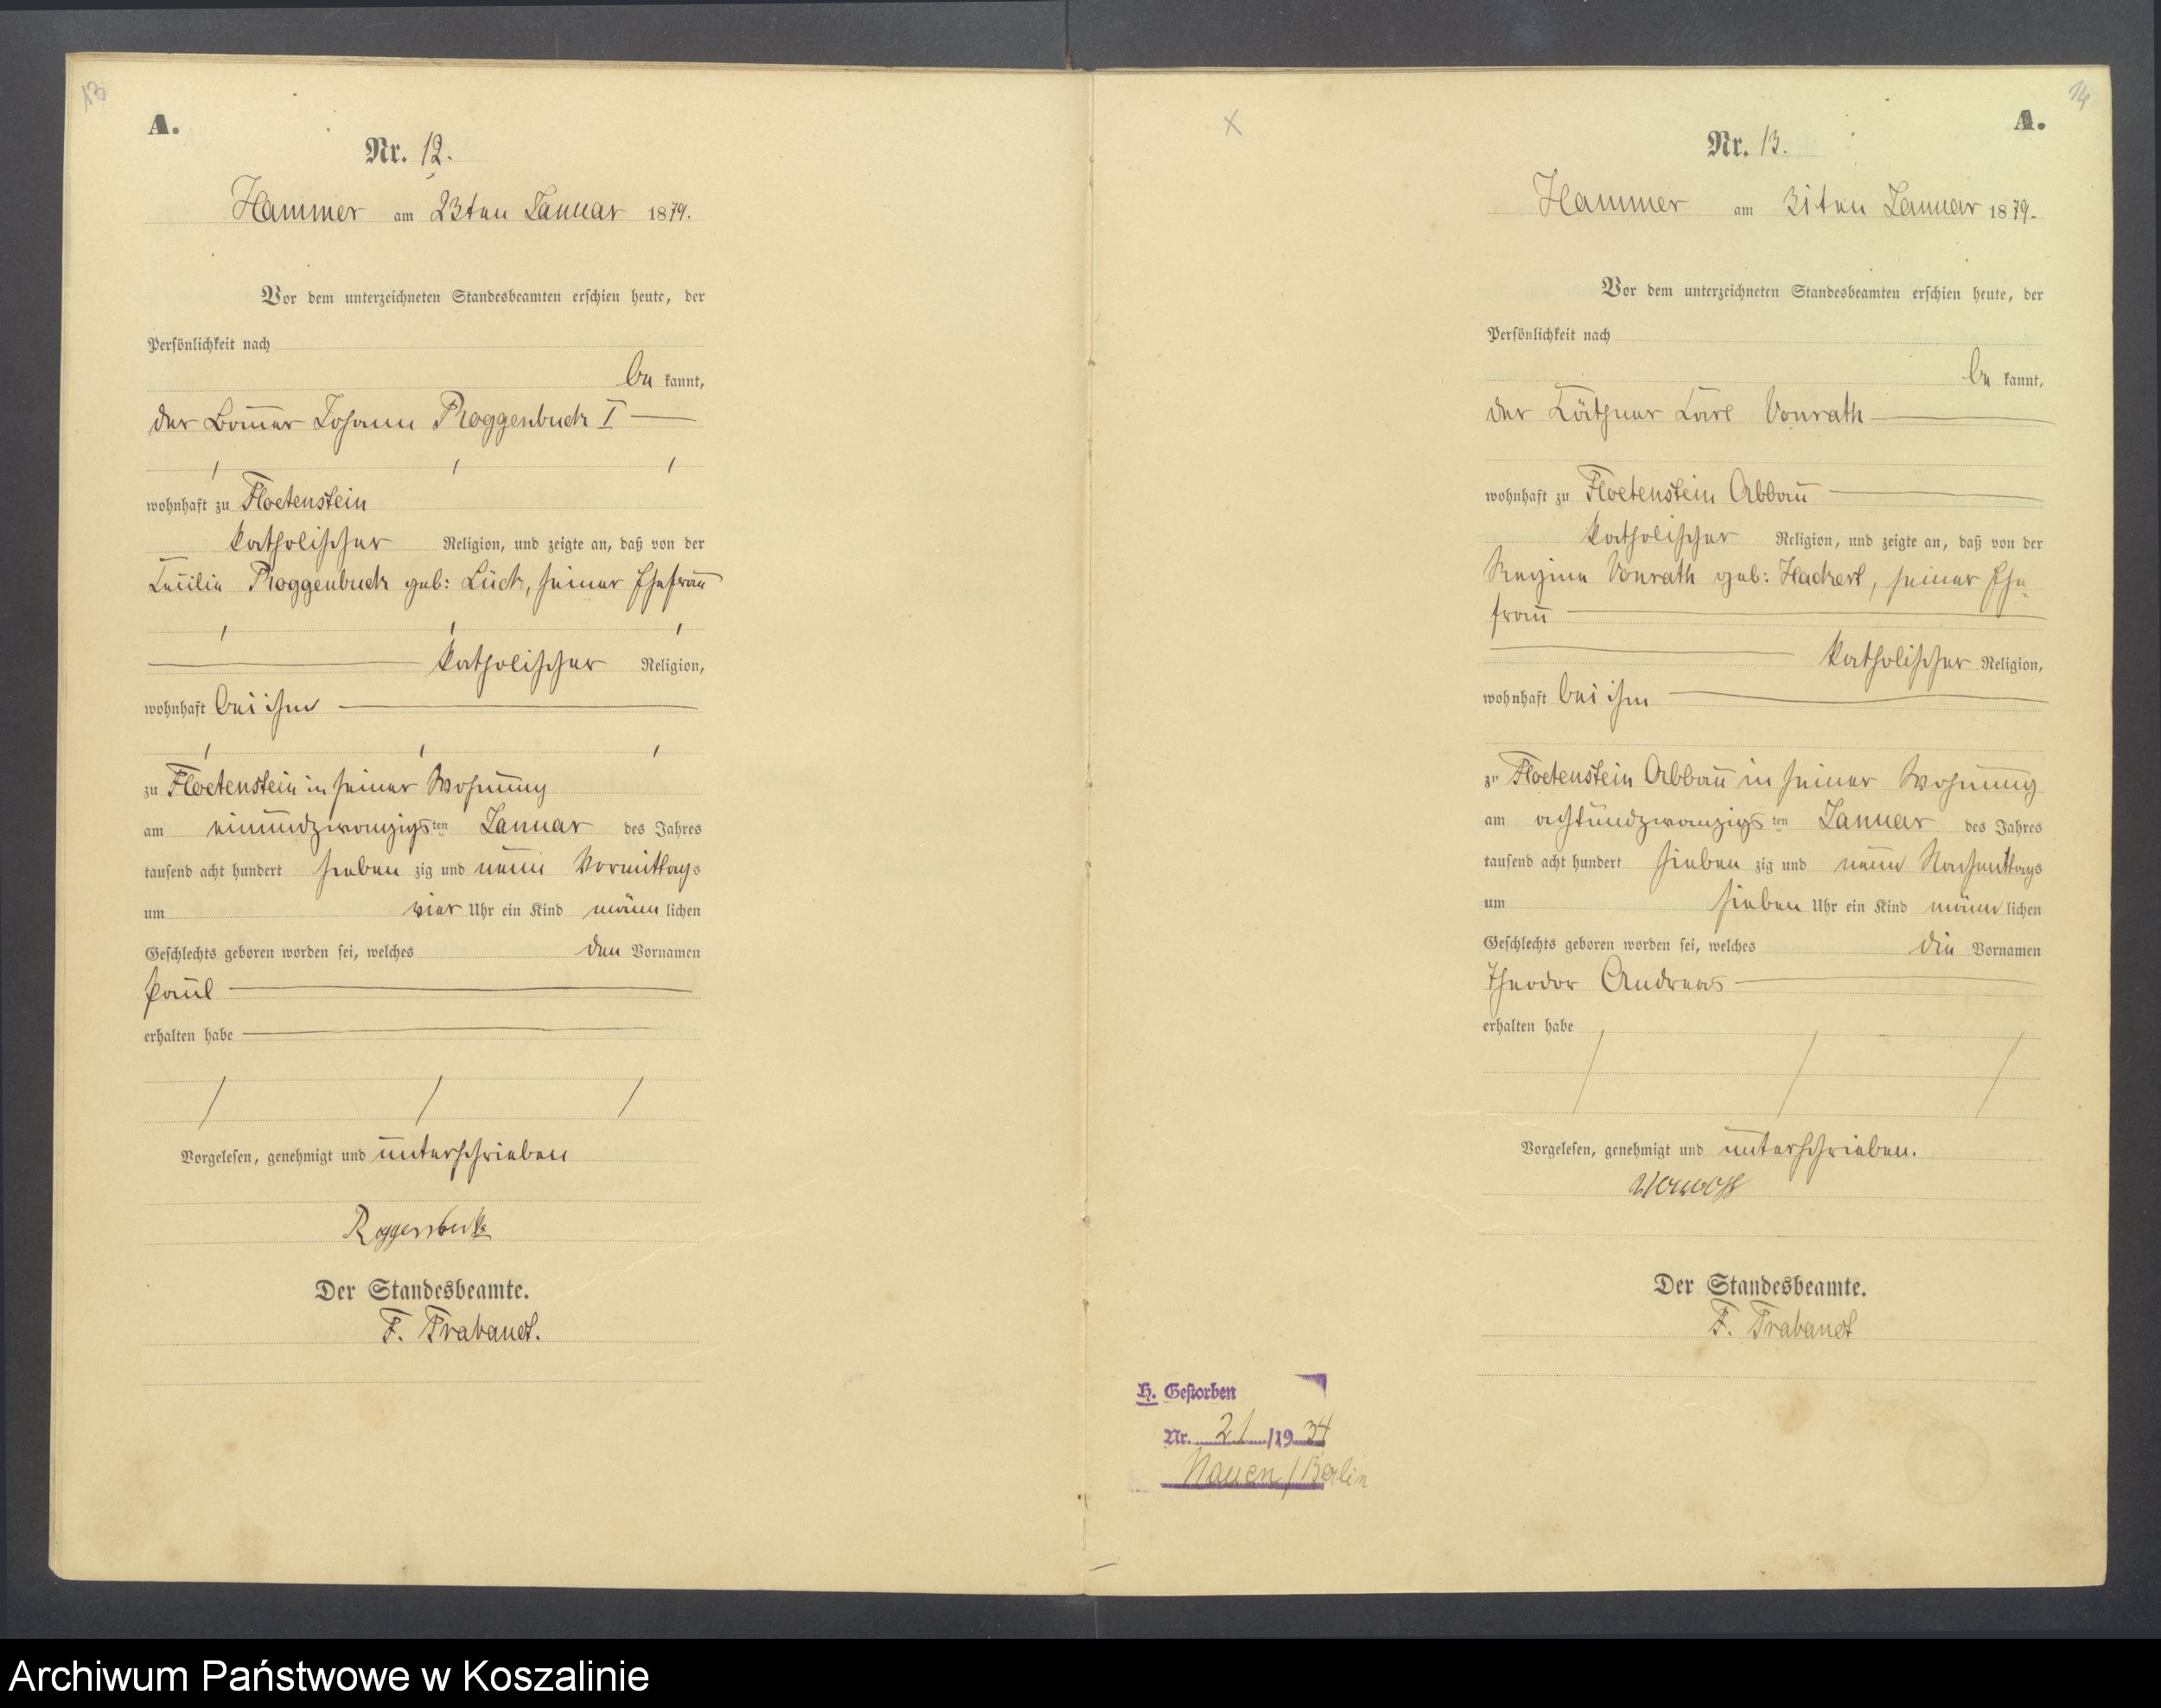 13
A.
Nr. 12.
Hammer am 23ten Januar 1879.
Vor dem unterzeichneten Standesbeamten erschien heute, der
Persönlichkeit nach
be kannt,
der Bauer Johann Roggenbuck I
wohnhaft zu Floetenstein
katholischer Religion, und zeigte an, daß von der
Cecilie Roggenbuck geb: Lück, seiner Ehefrau
katholischer Religion,
wohnhaft bei ihm
zu Floetenstein in seiner Wohnung
am einundzwanzigsten Januar des Jahres
tausend acht hundert sieben zig und neun Vormittags
um vier Uhr ein Kind männlichen
Geschlechts geboren worden sei, welches den Vornamen
Paul
erhalten habe
Vorgelesen, genehmigt und unterschrieben
Roggenbuck
Der Standesbeamte.
F. Trabandt.
14
A.
Nr. 13.
Hammer am 31ten Januar 1879.
Vor dem unterzeichneten Standesbeamten erschien heute, der
Persönlichkeit nach
be kannt,
der Käthner Carl Vonrath
wohnhaft zu Floetenstein Abbau
katholischer Religion, und zeigte an, daß von der
Regine Vonrath geb: Hackert, seiner Ehe
frau
katholischer Religion,
wohnhaft bei ihm
zu Floetenstein Abbau in seiner Wohnung
am achtundzwanzigsten Januar des Jahres
tausend acht hundert sieben zig und neun Nachmittags
um sieben Uhr ein Kind männlichen
Geschlechts geboren worden sei, welches die Vornamen
Theodor Andreas
erhalten habe
Vorgelesen, genehmigt und unterschrieben.
Der Standesbeamte.
F. Trabandt
H. Gestorben
Nr. 21/1934
Nauen/Berlin
Archiwum Państwowe w Koszalinie